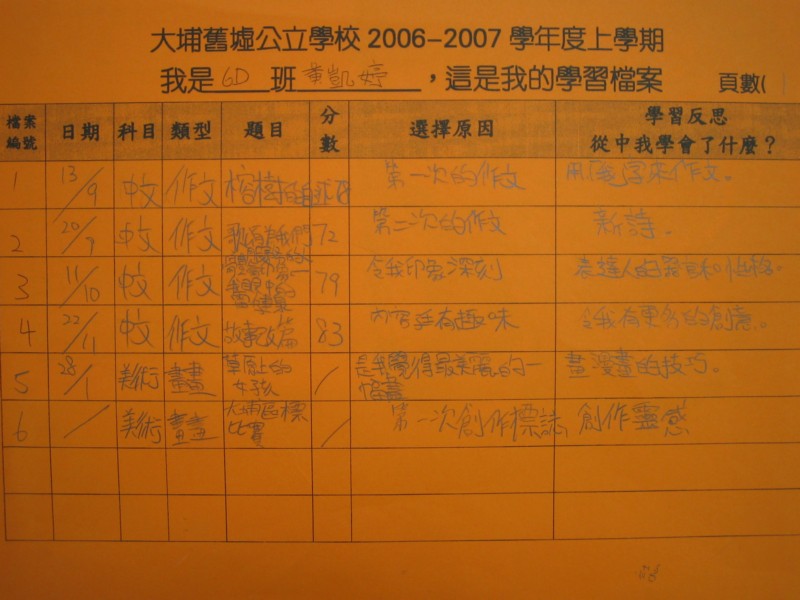 大埔舊墟公立學校 2006-2007 學年度上學期
我是 6D 班 黃凱婷 ，這是我的學習檔案 頁數(
檔案編號 日期 科目 類型 題目 分數 選擇原因 學習反思 從中我學會了什麼？
1 13/9 中文 作文 榕樹 第一次的作文 用 字來作文。
2 20/9 中文 作文 我們 72 第二次的作文 新詩。
3 11/10 中文 作文 79 令我印象深刻 表達人的 和性格。
4 22/11 中文 作文 故事改篇 83 內容 有趣味 令我有更多的創意。
5 28/1 美術 畫畫 草原上的女孩 / 是我覺得最美麗的一幅畫 畫漫畫的技巧。
6 / 美術 畫畫 大埔區標比賽 / 第一次創作標誌 創作靈感